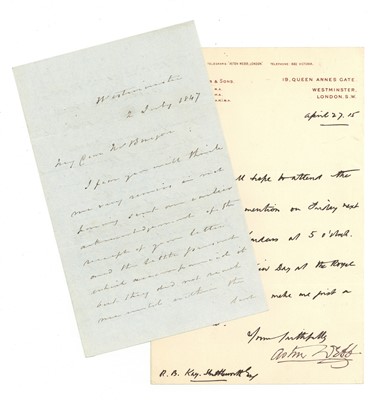 Westminster
2 July 1847
My Dear Mr
I fear you will think
me very remiss in not
having sent an earlier
acknowledgement of the
receipt of your letter
and the little
which accompanied it
but they did not reach
me until within the
& Sons.
19, QUEEN ANNE'S GATE
WESTMINSTER,
LONDON, S.W.
April 27. 15
hope to attend the
mention on Friday next
at 5 o'clock.
Day at the Royal
make me just a
Yours faithfully
Aston Webb
R. B. Kay-Shuttleworth Esq